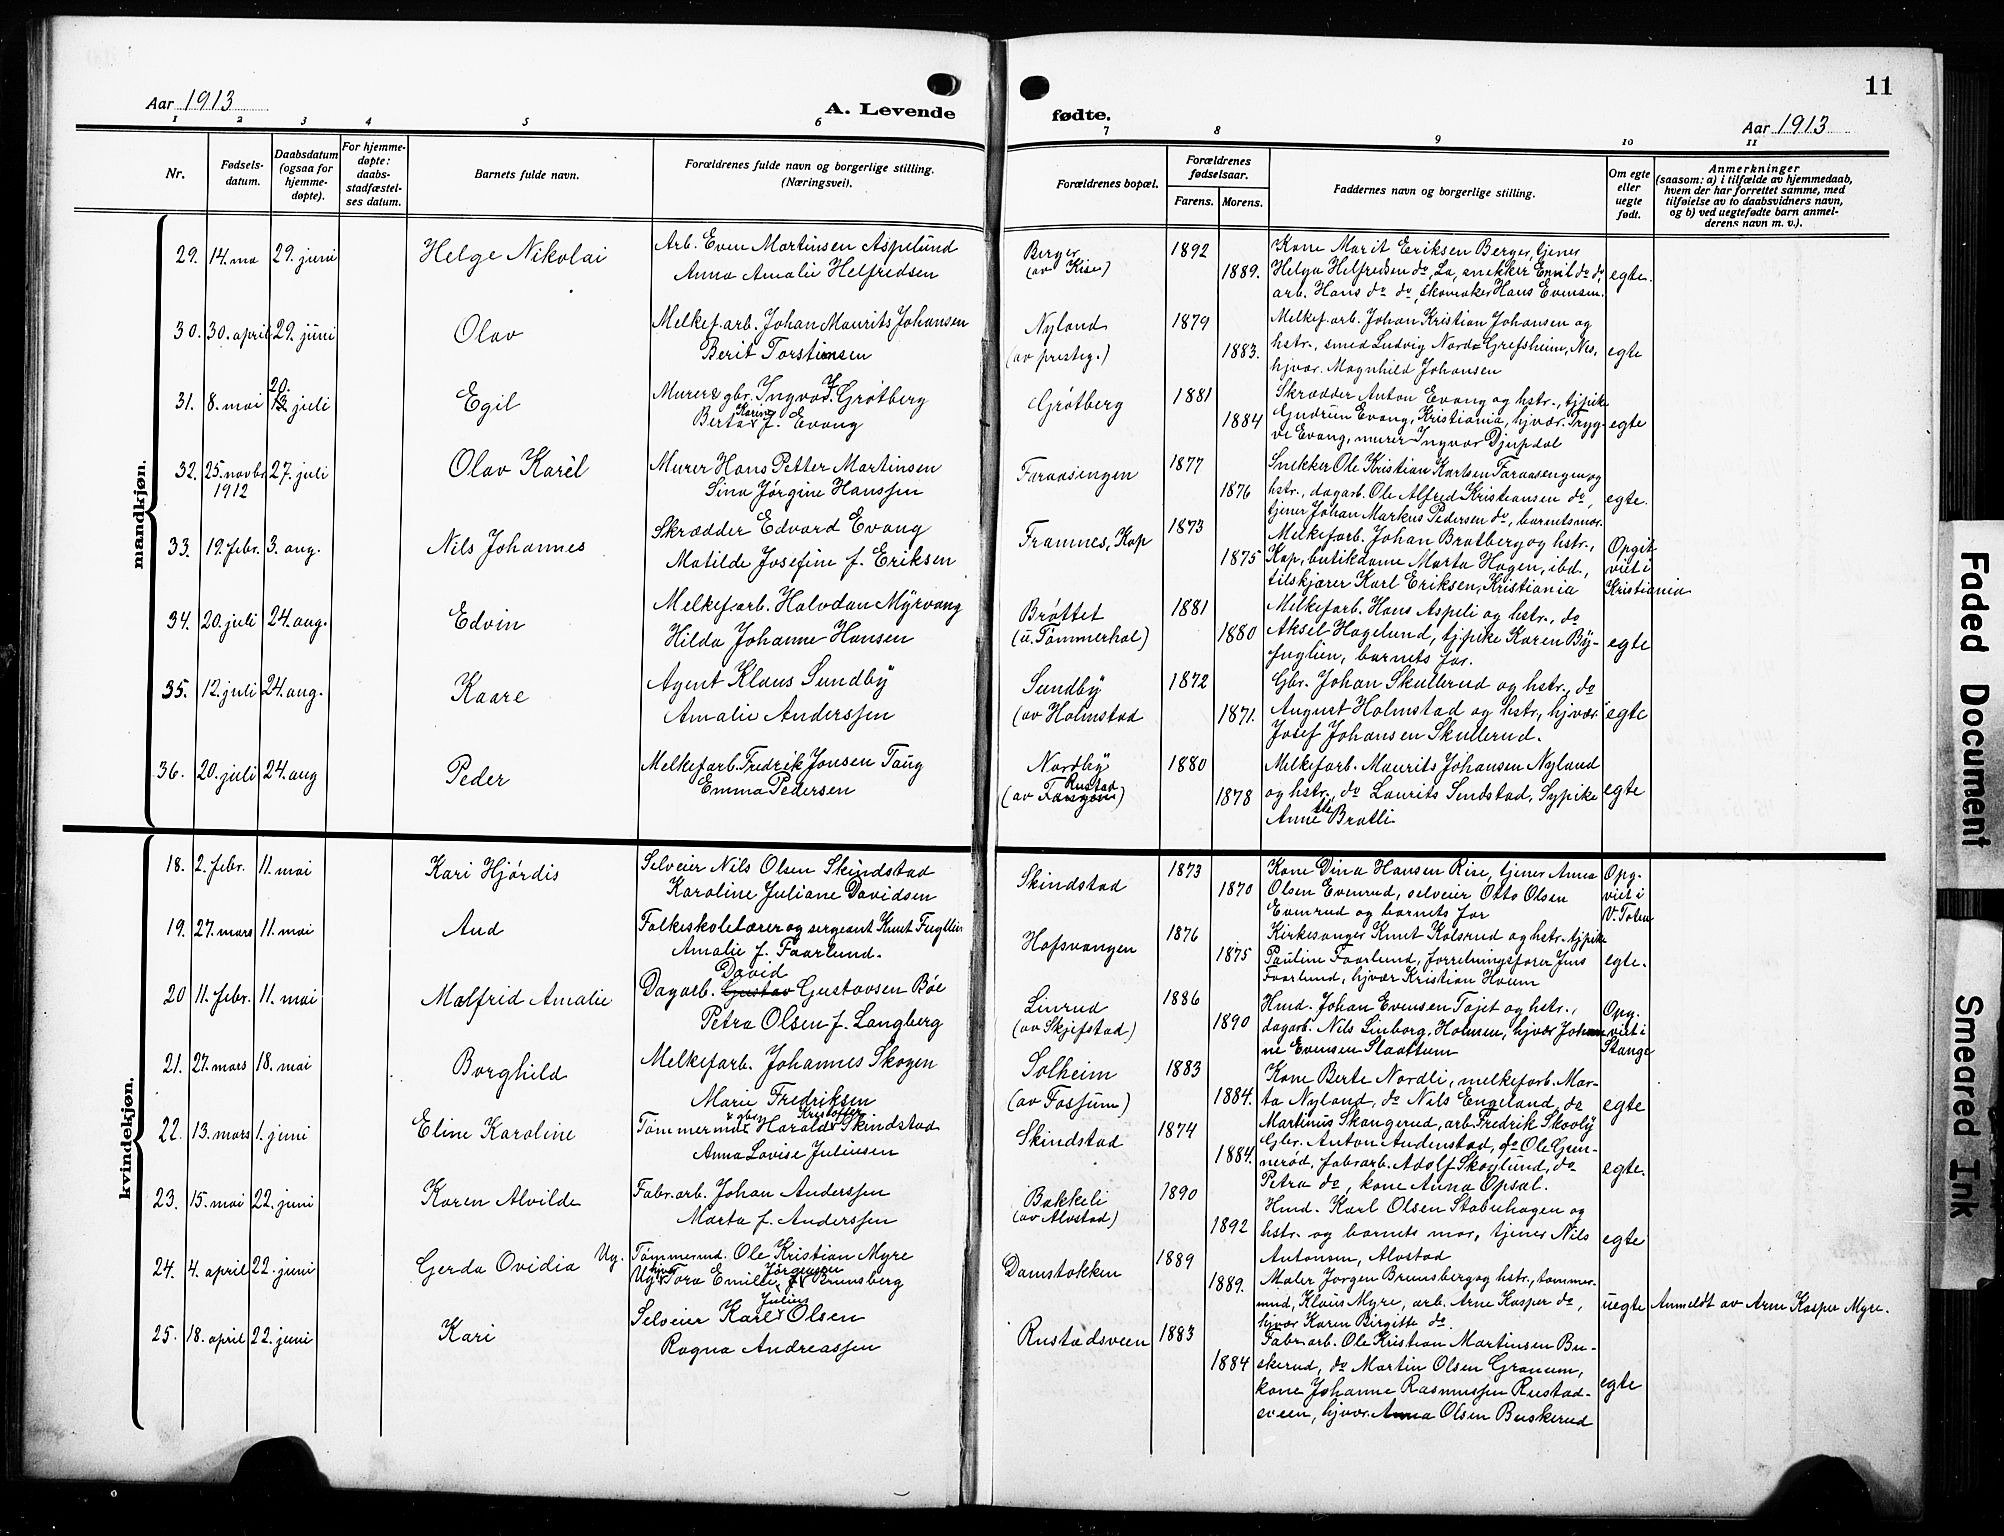 11
Aar 1913
A. Levende fødte.
Aar 1913
1 2 3 4 5 6 7 8 9 10 11
Nr.
Fødsels-
datum.
Daabsdatum
(ogsaa for
hjemme-
døpte).
For hjemme-
døpte:
daabs-
stadfæstel-
ses datum.
Barnets fulde navn.
Forældrenes fulde navn og borgerlige stilling.
(Næringsvei).
Forældrenes bopæl.
Forældrenes
fødselsaar.
Farens. Morens.
Faddernes navn og borgerlige stilling.
Om egte
eller
uegte
født.
Anmerkninger
(saasom: a) i tilfælde av hjemmedaab,
hvem der har forrettet samme, med
tilføielse av to daabsvidners navn,
og b) ved uegtefødte barn anmel-
derens navn m. v.).
mandkjøn.
29. 14. ma 29. juni Helge Nikolai
Arb. Even Martinsen Aspelund
Anna Amalie Helfredsen
Berger
(av Kise)
1892
1889.
Kone Marit Eriksen Berger, tjener
Helga Helfredsen do, La, snekker Emil do do,
arb. Hans do do, skomaker Hans Evensen.
egte.
30. 30. april 29. juni Olav
Melkef.arb. Johan Maurits Johansen
Berit Torstensen
Nyland
(av presteg.)
1879
1883.
Melkef.arb. Johan Kristian Johansen og
hstr., smed Ludvig Nord Grefsheim, Nes,
hjvær. Magnhild Johansen
egte
31. 8. mai 20. 13 juli Egil
Murer & gbr. Ingvar Y. Grøtberg
Berta Karine f. Evang
Grøtberg
1881
1884
Skrædder Anton Evang og hstr., tjpike
Gudrun Evang, Kristiania, hjvær. Tryg-
ve Evang, murer Ingvar Djupdal
egte
32. 25. novbr. 1912 27. juli Olav Karèl
Murer Hans Petter Martinsen
Sina Jørgine Hanssen
Faraasengen
1877
1876
Snekker Ole Kristian Karlsen Faraasengen og
hstr., dagarb. Ole Alfred Kristiansen do,
tjener Johan Markus Pedersen do, barnets mor.
egte.
33. 19. febr. 3. aug. Nils Johannes
Skrædder Edvard Evang
Matilde Josefine f. Eriksen
Framnes, Kap
1873
1875
Melkefarb. Johan Bratberg og hstr.,
Kap, butikdame Marta Hagen, ibd.,
tilskjærer Karl Eriksen, Kristiania
Opgit
viet i
Kristiania
34. 20. juli 24. aug. Edvin
Melkefarb. Halvdan Myrvang
Hilda Johanne Hansen
Brøttet
(u. Tømmerhol)
1881
1880
Melkefarb. Hans Aspeli og hstr., do
Aksel Hagelund, tjpike Karen By-
fuglien, barnets far.
egte
35. 12. juli 24. aug. Kaare
Agent Klaus Sundby
Amalie Anderssen
Sundby
(av Holmstad
1872
1871.
Gbr. Johan Skullerud og hstr., do
August Holmstad og hstr., hjvær.
Josef Johansen Skullerud.
egte
36. 20. juli 24. aug Peder
Melkefarb. Fredrik Jonsen Taug
Emma Pedersen
Nordby
(av Rustad)
1880
1878
Melkefarb. Maurits Johansen Nyland
og hstr., do Laurits Sundstad, Sypike
Annette Bratli
egte
kvindekjøn.
18. 2. febr. 11. mai Kari Hjørdis
Selveier Nils Olsen Skindstad
Karoline Juliane Davidsen
Skindstad
1873
1870
Kone Dina Hansen Rise, tjener Anna
Olsen Evenrud, selveier Otto Olsen
Evenrud og barnets far
Opg.
viet i
V. Toten
19. 27. mars 11. mai Aud
Folkeskolelærer og sergeant Knut Fuglli
Amalie f. Faarlund.
Hofsvangen
1876
1875
Kirkesanger Knut Kolsrud og hstr. tjpike
Pauline Faarlund, forretningsfører Jens
Faarlund, hjvær Kristian Hveem
egte.
20 11. febr. 11. mai Malfrid Amalie
Dagarb. Gustav David Gustavsen Bøe
Petra Olsen f. Langberg
Linrud
(av Skjefstad)
1886
1890
Hmd. Johan Evensen Tøjet og hstr.,
dagarb. Nils Linborg, Holmen, hjvær Johan-
ne Evensen Slaattum
Opg.
viet i
Stange
21. 27. mars 18. mai Borghild
Melkefarb. Johannes Skogen
Marie Fredriksen
Solheim
(av Fossum)
1883
1884.
Kone Berte Nordli, melkefarb. Mar-
ta Nyland, do Nils Engeland, do
Martinus Skangerud, arb. Fredrik Skovly
egte
22. 13. mars 1. juni Eline Karoline
Tømmermd. & gbr. Harald Kristoffer Skindstad
Anna Lovise Juliusen
Skindstad
1874
1884.
Gbr. Anton Audenstad, do Ole Gun-
nerød, fabr.arb. Adolf Skoglund, do
Petra do, kone Anna Opsal.
egte.
23. 15. mai 22. juni Karen Alvilde
Fabr.arb. Johan Anderssen
Marta f. Anderssen
Bakkeli
(av Alvstad)
1890
1892
Hmd. Karl Olsen Stabuhagen og
hstr. og barnets mor, tjener Nils
Antonsen, Alvstad
egte
24. 4. april 22. juni Gerda Ovidia
Ug. Tømmermd. Ole Kristian Myre
Ug. Tora Emilie Jørgensen Brunsberg
Damstokken
1889
1889.
Maler Jørgen Brunsberg og hstr., tømmer-
md. Klaus Myre, arb. Arne Kasper do,
hjvær Karen Birgitte do.
uegte
Anmeldt av Arne Kasper Myre.
25. 18. april 22. juni Kari
Selveier Karl Julius Olsen
Ragna Andreassen
Rustadsveen
1883
1884
Fabr.arb. Ole Kristian Martinsen Bu-
skerud, do Martin Olsen Granum,
kone Johanne Rasmussen Rustad-
sveen, hjvær. Anna Olsen Buskerud
egte
Faded Document
Smeared Ink